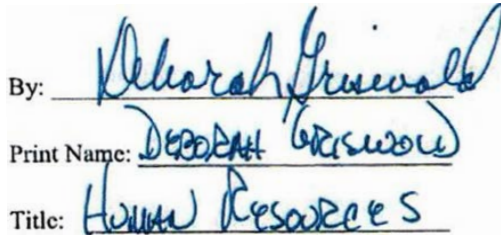 By: Deborah Griswold
Print Name: DEBORAH GRISWOLD
Title: HUMAN RESOURCES